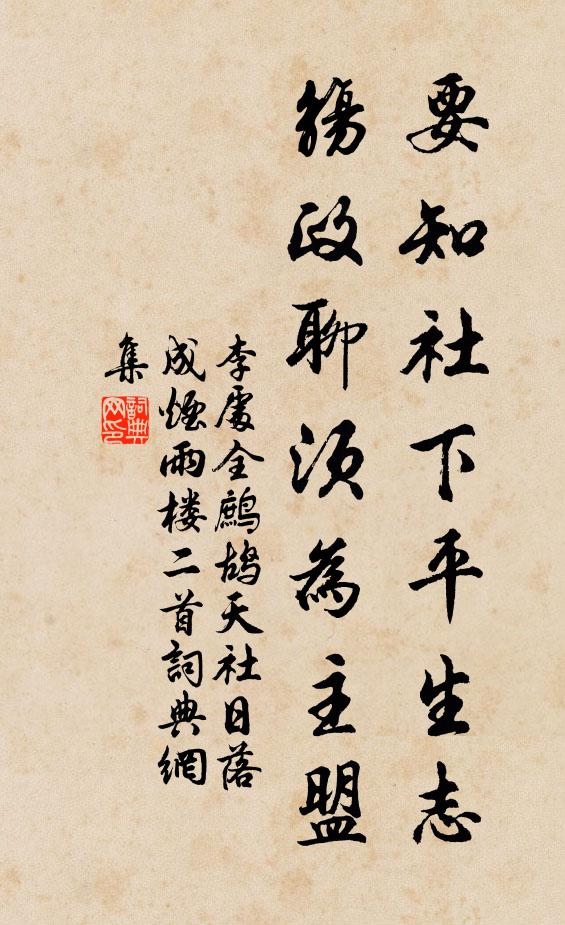 要知社下平生志
觴政聊須為主盟
李處全鷓鴣天社日落
成煙雨楼二首詞典網
集
詞典
网印